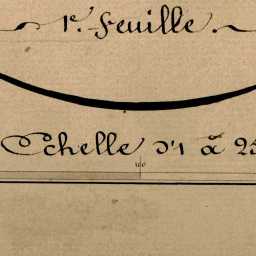 1e. Feuille.
Echelle d'1 à 25
100